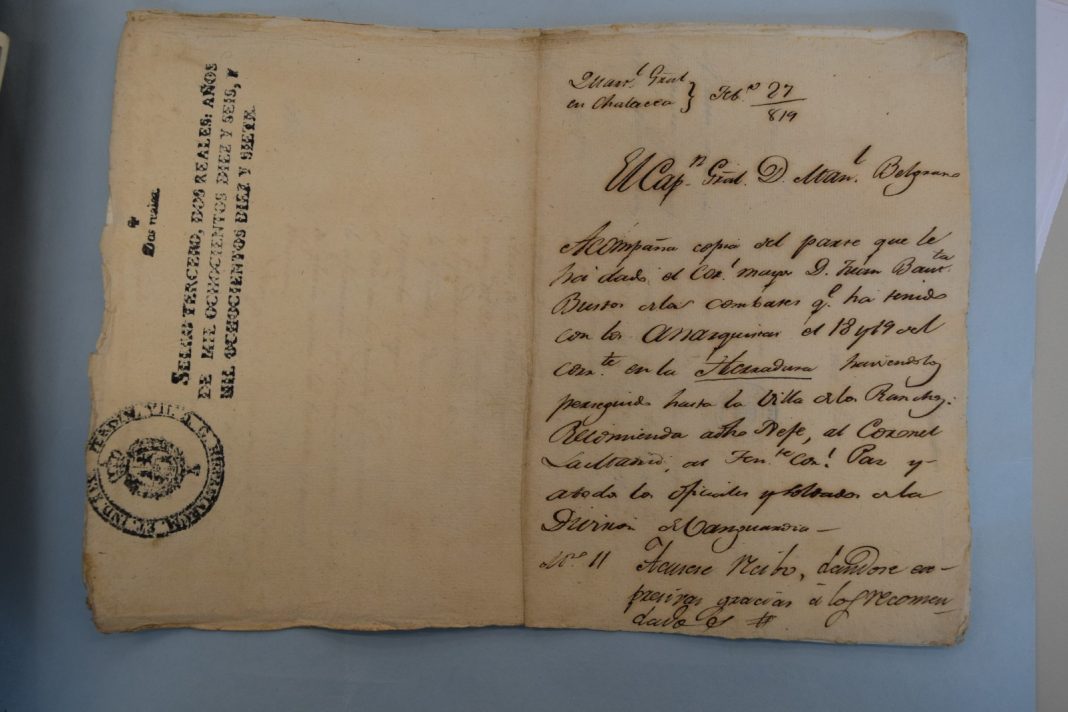 Dos reales
SELLO TERCERO, DOS REALES: AÑOS
DE MIL OCHOCIENTOS DIEZ Y SEIS, Y
MIL OCHOCIENTOS DIEZ Y SIETE.
FERDIN. VII D. G. HISPANIAR. ET IND. R.
Quart.l Gral
en Chalacea } Feb.o 27
819
El Cap.n Gral. D. Man.l Belgrano
Acompaña copia del parte que le
ha dado el Cor.l mayor D. Juan Baut.ta
Bustos de los combates q.e ha tenido
con los Anarquistas el 18 y 19 del
corr.te en la Herradura haviendolos
perseguido hasta la Villa de los Ranchos.
Recomienda a dho Xefe, al Coronel
LaMadrid, al Ten.te Cor.l Paz y
a todos los oficiales y soldados de la
Division de Vanguardia —
11 Acusese recibo, dandose ex-
presivas gracias à los recomen
dados